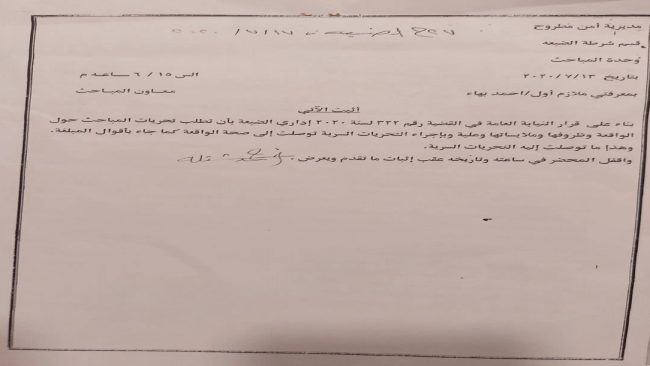 مديرية أمن مطروح
قسم شرطة الضبعه
وحدة المباحث
بتاريخ ٢٠٢٠/٧/١٣ الى ٦/١٥ ساعه م
بمعرفتي ملازم أول/احمد بهاء معاون المباحث
أثبت الآتي
بناء على قرار النيابة العامة في القضية رقم ٣٢٢ لسنة ٢٠٢٠ إداري الضبعة بأن تطلب تحريات المباحث حول
الواقعة وظروفها وملابساتها وعلية وبإجراء التحريات السرية توصلت إلى صحة الواقعة كما جاء بأقوال المبلغة.
وهذا ما توصلت إليه التحريات السرية.
واقفل المحضر في ساعته وتاريخه عقب إثبات ما تقدم ويعرض.